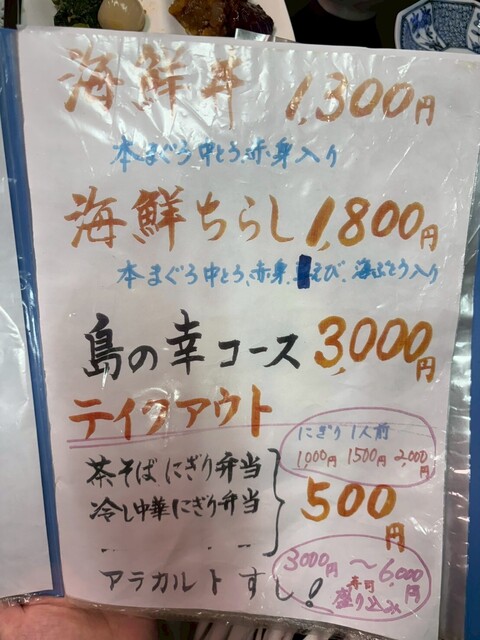 海鮮丼 1,300円
本まぐろ中とろ、赤身入り
海鮮ちらし 1,800円
本まぐろ中とろ、赤身、えび、海ぶどう入り
島の幸コース 3,000円
テイクアウト
にぎり 1人前
1,000円 1500円 2,000円
茶そば、にぎり弁当
冷し中華にぎり弁当
500円
アラカルトすし!
3000円〜6,000円
寿司
盛り込み